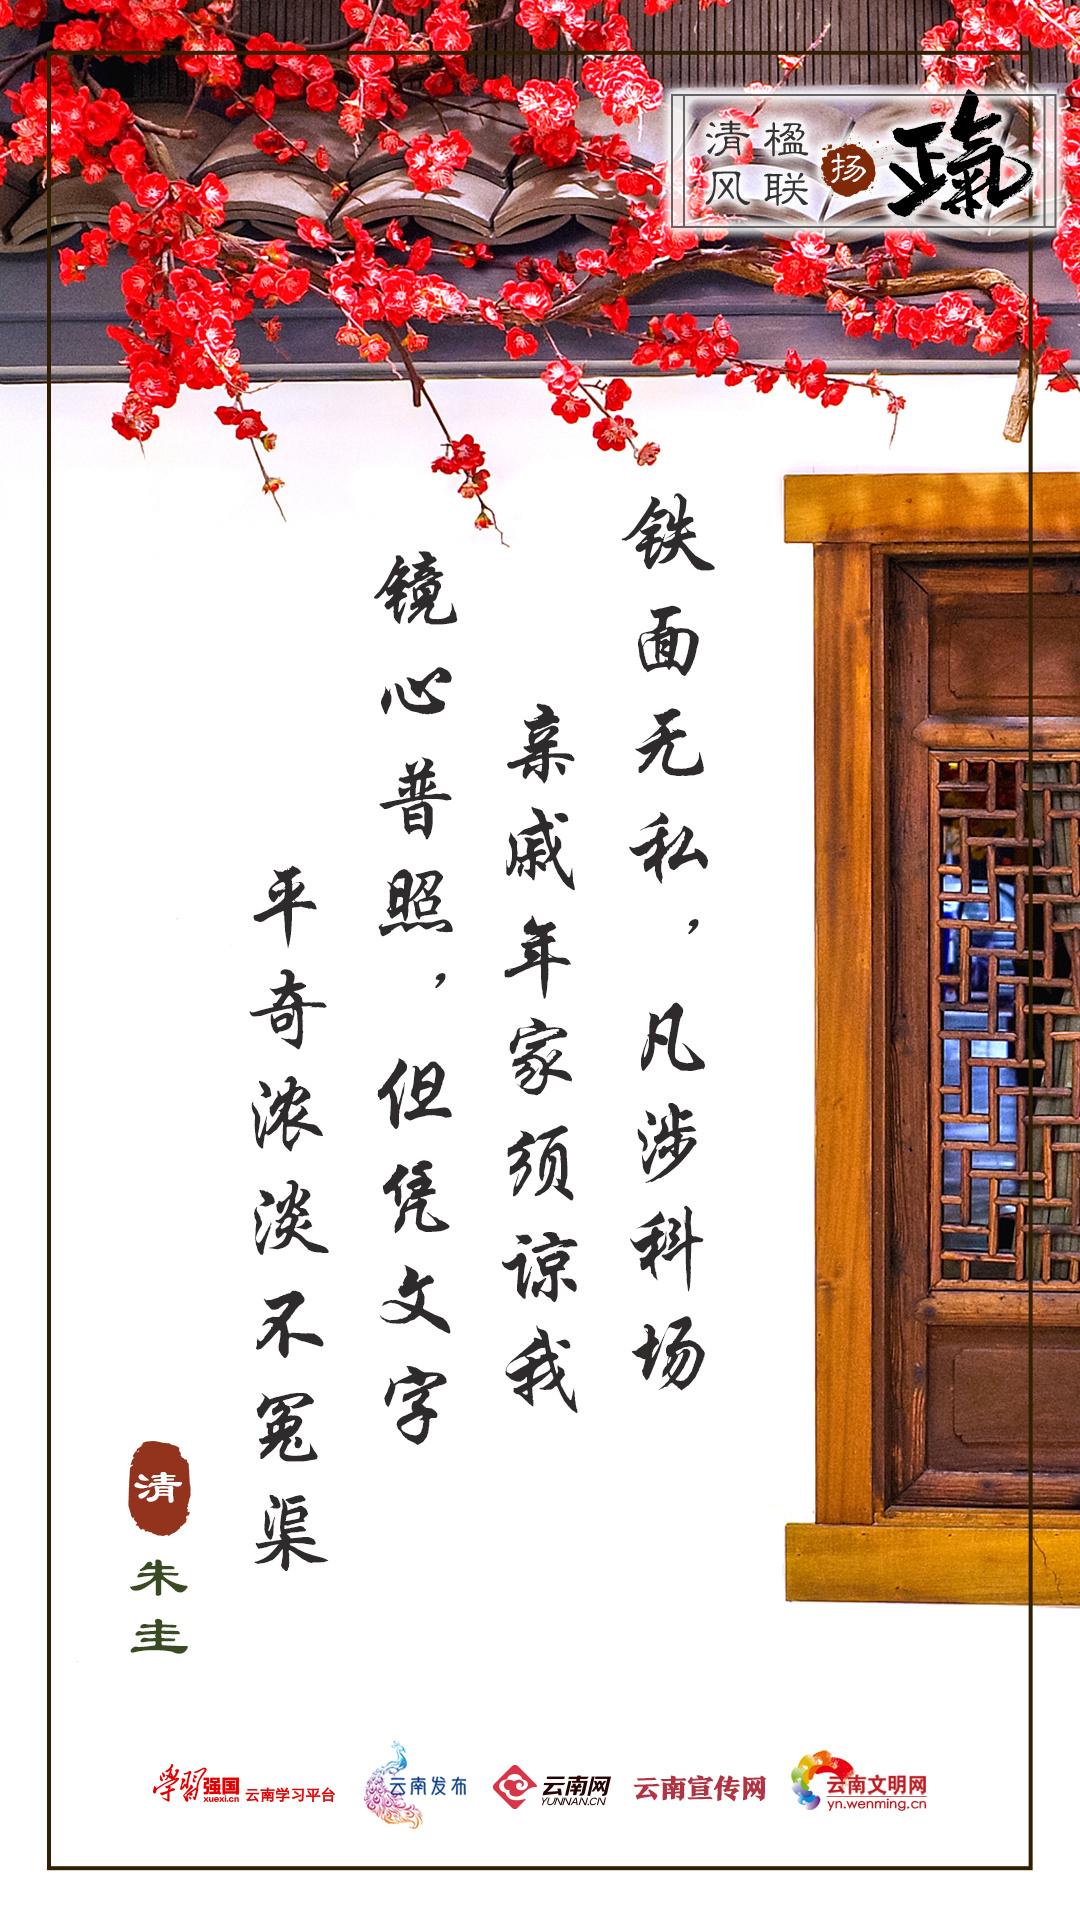 清风
楹联
扬
正气
铁面无私，凡涉科场
亲戚年家须谅我
镜心普照，但凭文字
平奇浓淡不冤渠
清
朱圭
学习强国
xuexi.cn
云南学习平台
云南发布
云南网
YUNNAN.CN
云南宣传网
云南文明网
yn.wenming.cn